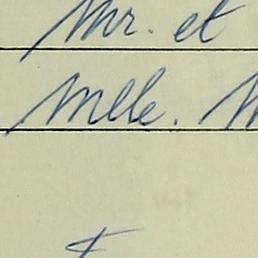 Mr. et
Mlle.